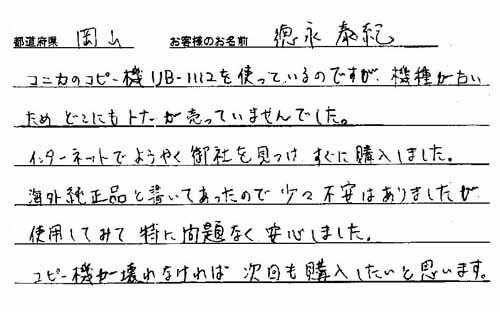 都道府県 岡山 お客様のお名前 徳永泰紀
コニカのコピー機 UB-1112を使っているのですが 機種が古い
ため どこにもトナーが売っていませんでした。
インターネットで ようやく 御社を見つけ すぐに購入しました。
海外純正品と書いてあったので 少々不安はありましたが
使用してみて 特に問題なく 安心しました。
コピー機が壊れなければ 次回も購入したいと思います。